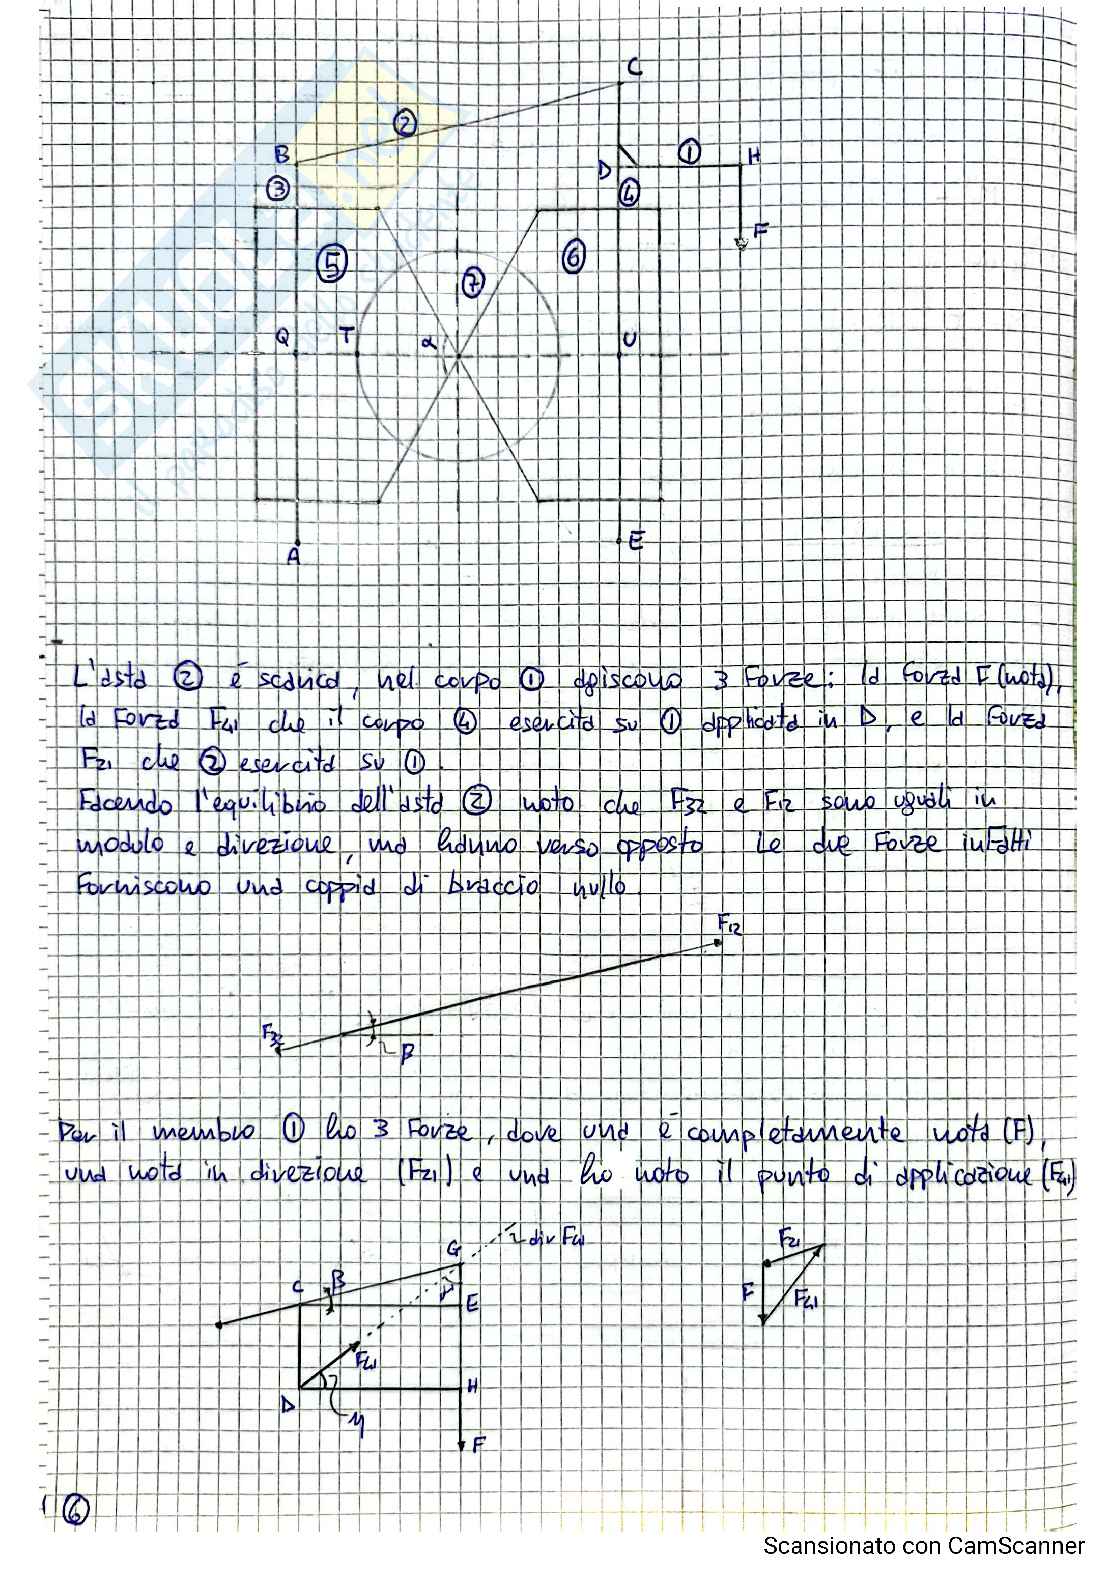 C
②
B
D
①
H
③
④
F
⑤
⑥
⑦
Q
T
α
U
A
E
L'asta ② é scarica, nel corpo ① agiscono 3 Forze: la forza F (nota),
la Forza F41 che il corpo ④ esercita su ① applicata in D, e la Forza
F21 che ② esercita su ①.
Facendo l'equilibrio dell'asta ② noto che F32 e F12 sono uguali in
modulo e direzione, ma hanno verso opposto. Le due Forze infatti
Forniscono una coppia di braccio nullo.
F12
F32
β
Per il membro ① ho 3 Forze, dove una é completamente nota (F),
una nota in direzione (F21) e una ho noto il punto di applicazione (F41)
dir F41
G
F21
C
β
γ
E
F
F41
F41
D
H
η
F
⑥
Scansionato con CamScanner